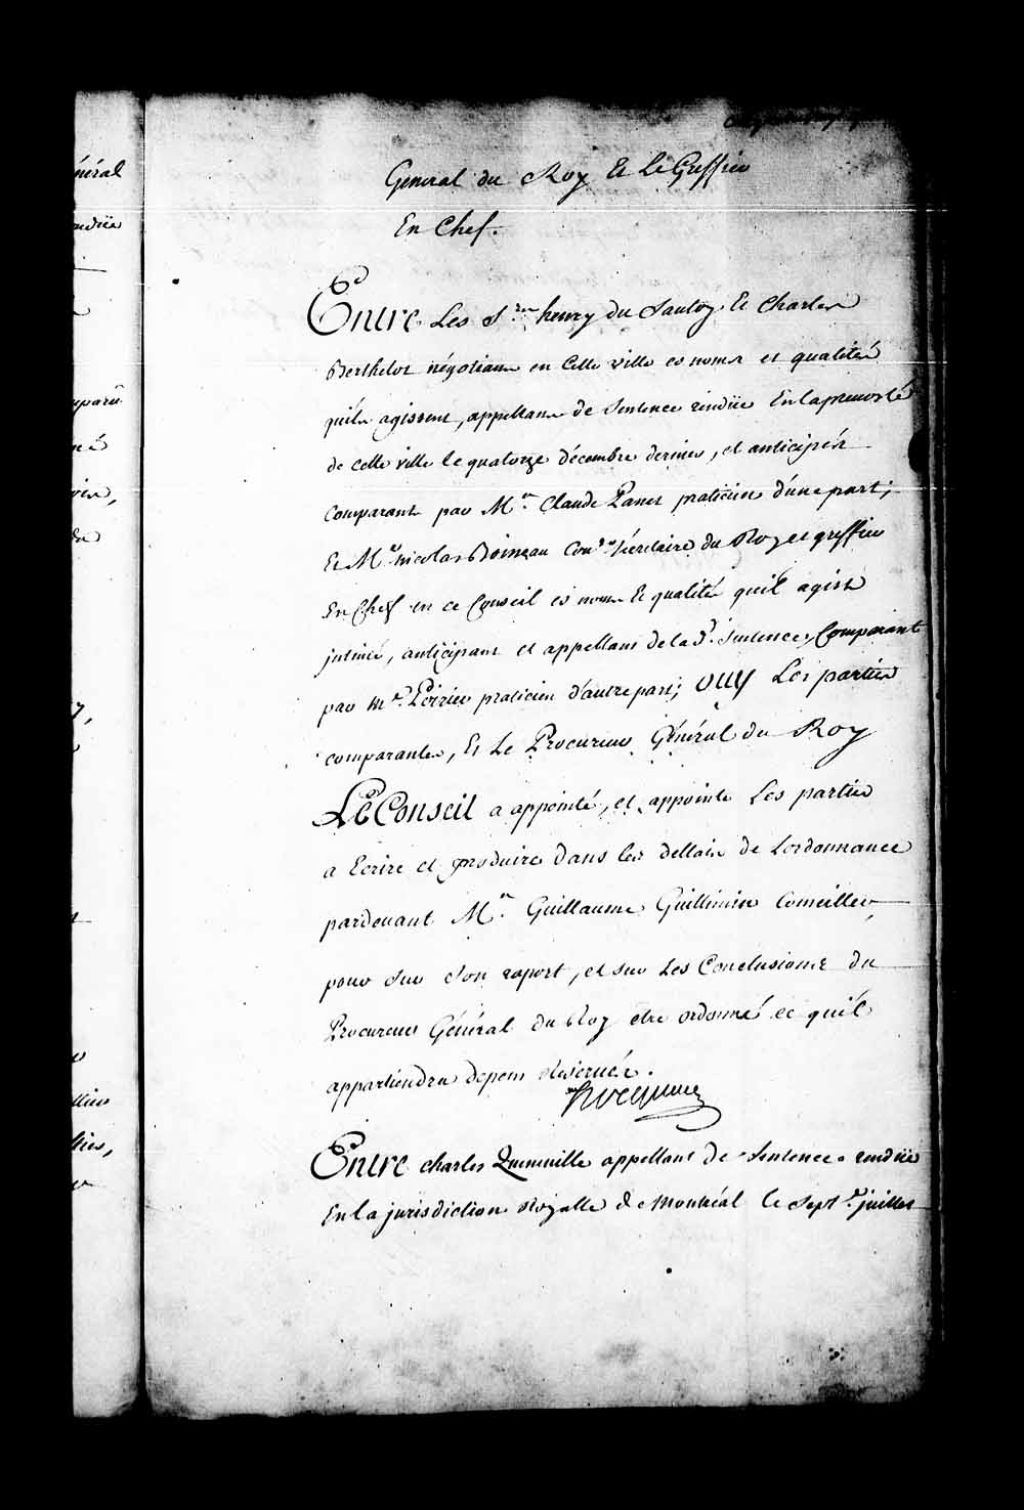 General du Roy Et Le Greffier
En Chef.
Entre Les S.rs henry du Sautoy Et Charles
Berthelot négotians en Cette ville es noms et qualités
quils agissent, appellans de Sentence rendüe En la prevosté
de cette ville le quatorze décembre dernier, et anticipés
Comparants par M.e Claude Panet praticien d'une part;
Et M.e nicolas Boisseau Con.er Sécrétaire du Roy et greffier
En Chef en ce Conseil es noms Et qualités quil agist
intimé, anticipant et appellant de la d. Sentence, Comparant
par m.e Poirier praticien d'autre part; OUY Les parties
comparantes, Et Le Procureur Général du Roy
LE Conseil a appointé, et appointe Les parties
a Ecrire et produire dans les dellais de Lordonnance
pardevant M.e Guillaume Guillimin Conseiller,
pour sur son raport, et sur Les Conclusions du
Procureur Général du Roy etre ordonné ce qu'il
appartiendra depens reservés.
hocquart
Entre charles Quenneville appellant de Sentence rendüe
En la jurisdiction Royalle de Montréal le Sept juillet
néral
endüe